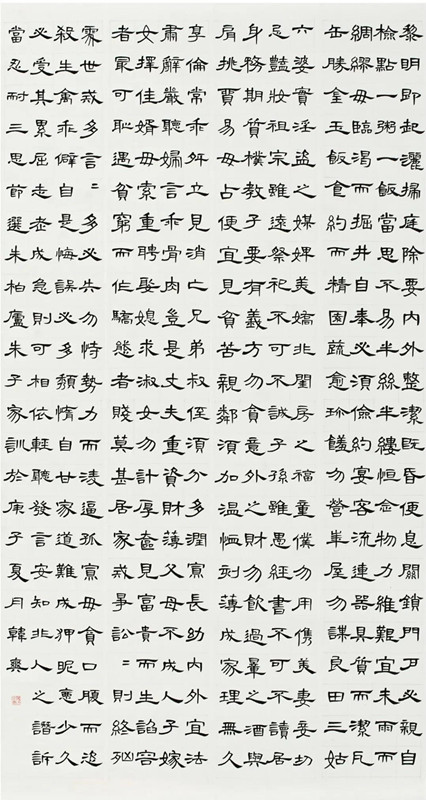 黎明即起灑掃庭除要內外整潔既昏便息關鎖門戶必親自
檢點一粥一飯當思不易半絲半縷恒念物力維艱宜未雨而
綢繆毋臨渴而掘井自奉必須儉約宴客流連器具質而潔瓦
缶勝金玉飯食約而精園蔬愈珍饈勿營華屋勿謀良田三姑
六婆實淫盜之媒婢美嬌非閨房之福童僕勿用俊美妻妾切
忌豔妝祖宗雖遠祭祀不可不誠子孫雖愚經書不可不讀居
身務期質樸教子要有義方勿貪意外之財勿飲過量之酒與
肩挑貿易毋占便宜見貧苦親鄰須加溫恤刻薄成家理無久
享倫常乖舛立見消亡兄弟叔侄須分多潤寡長幼內外宜法
肅辭嚴聽婦言乖骨肉豈是丈夫重資財薄父母不成人子嫁
女擇佳婿毋索重聘娶媳求淑女勿計厚奩見富貴而生諂容
者最可恥遇貧窮而作驕態者賤莫甚居家戒爭訟〻則終凶
處世戒多言〻多必失勿恃勢力而凌逼孤寡毋貪口腹而恣
殺生禽乖僻自是悔誤必多頹惰自甘家道難成狎昵惡少久
必受其累屈志老成急則可相依輕聽發言安知非人之譖訴
當忍耐三思節選朱柏廬朱子家訓於庚子夏月韓爽